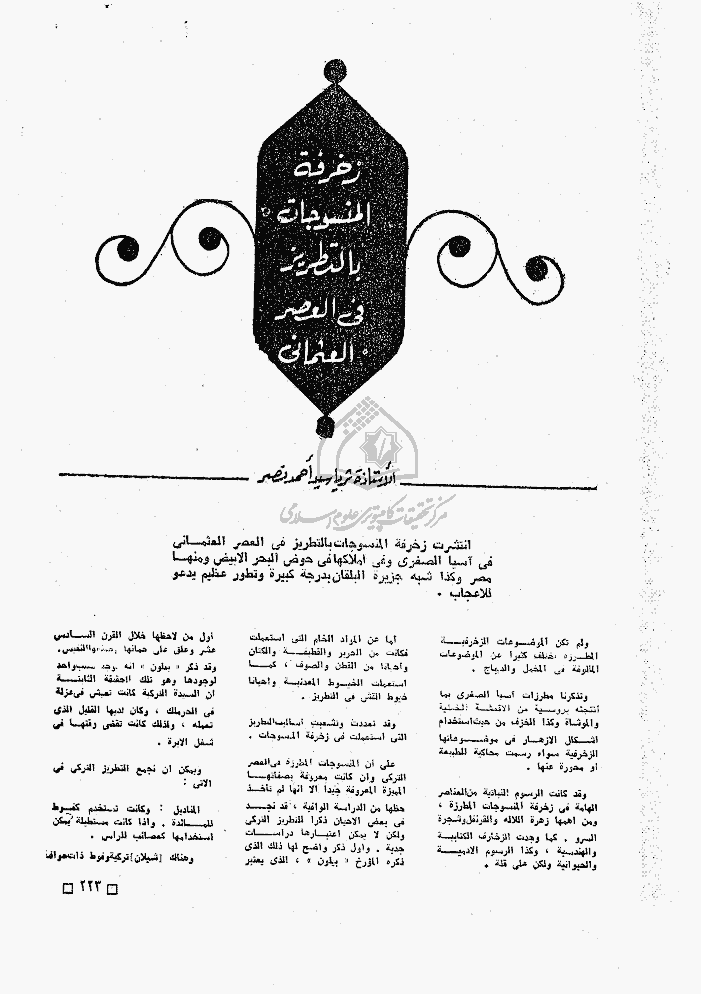 زخرفة
المنسوجات
بالتطريز
فى العصر
العثمانى
الأستاذة ثريا سيد أحمد نصر
مركز تحقيقات كامپيوترى علوم اسلامى
انتشرت زخرفة المنسوجات بالتطريز فى العصر العثمـــانى
فى آسيا الصغرى وفى املاكها فى حوض البحر الابيض ومنهــا
مصر وكذا شبه جزيرة البلقان بدرجة كبيرة وتطور عظيم يدعو
للاعجاب .
ولم تكن الموضــوعات الزخرفيــة
المطــرزة تختلف كثيرا عن الموضوعات
المألوفة فى المخمل والديباج .
وتذكرنا مطرزات آسيا الصغرى بما
أنتجته بروسية من الاقمشة
والموشاة وكذا الخزف من حيث استخدام
اشــكال الازهــار فى موضــوعاتها
الزخرفية سواء رسمت محاكية للطبيعة
أو محورة عنها .
وقد كانت الرسوم النباتية من العناصر
الهامة فى زخرفة المنسوجات المطرزة ،
ومن أهمها زهرة اللاله والقرنفل وشجرة
السرو . كما وجدت الزخارف الكتابيــة
والهندسية ، وكذا الرسوم الادميــة
والحيوانية ولكن على قلة .
أما عن المواد الخام التى استعملت
فكانت من الحرير والقطيفــة والكتان
وأحيانا من القطن والصوف ، كمــا
استعملت الخيــوط المعدنيــة وأحيانا
خيوط القش فى التطريز .
وقد تعددت وتشعبت أساليب التطريز
التى استعملت فى زخرفة المنسوجات .
على أن المنسوجات المطرزة فى العصر
التركى وان كانت معروفة بصفاتهــا
المميزة المعروفة جيدا الا انها لم تأخــذ
حظها من الدراسة الوافية ، قد نجــد
فى بعض الاحيان ذكرا للتطريز التركى
ولكن لا يمكن اعتبارها دراســات
جدية . وأول ذكر واضح لها ذلك الذى
ذكره المؤرخ « بيلون » ، الذى يعتبر
أول من لاحظها خلال القرن الســادس
عشر وعلق على جمالها
وقد ذكر « بيلون » انه يوجد سبب واحد
لوجودها وهو تلك الحقيقة الثابتــة
ان السيدة التركية كانت تعيش فى عزلة
فى الحرملك ، وكان لديها القليل الذى
تعمله ، ولذلك كانت تقضى وقتهــا فى
شغل الابرة .
ويمكن ان نجمع التطريز التركى فى
الاتى :
المناديل : وكانت تستخدم كفــوط
للمــائدة . واذا كانت مستطيلة يمكن
استخدامها كعصائب للرأس .
وهناك (شيلان) تركية وفوط ذات حوافى
٢٢٣